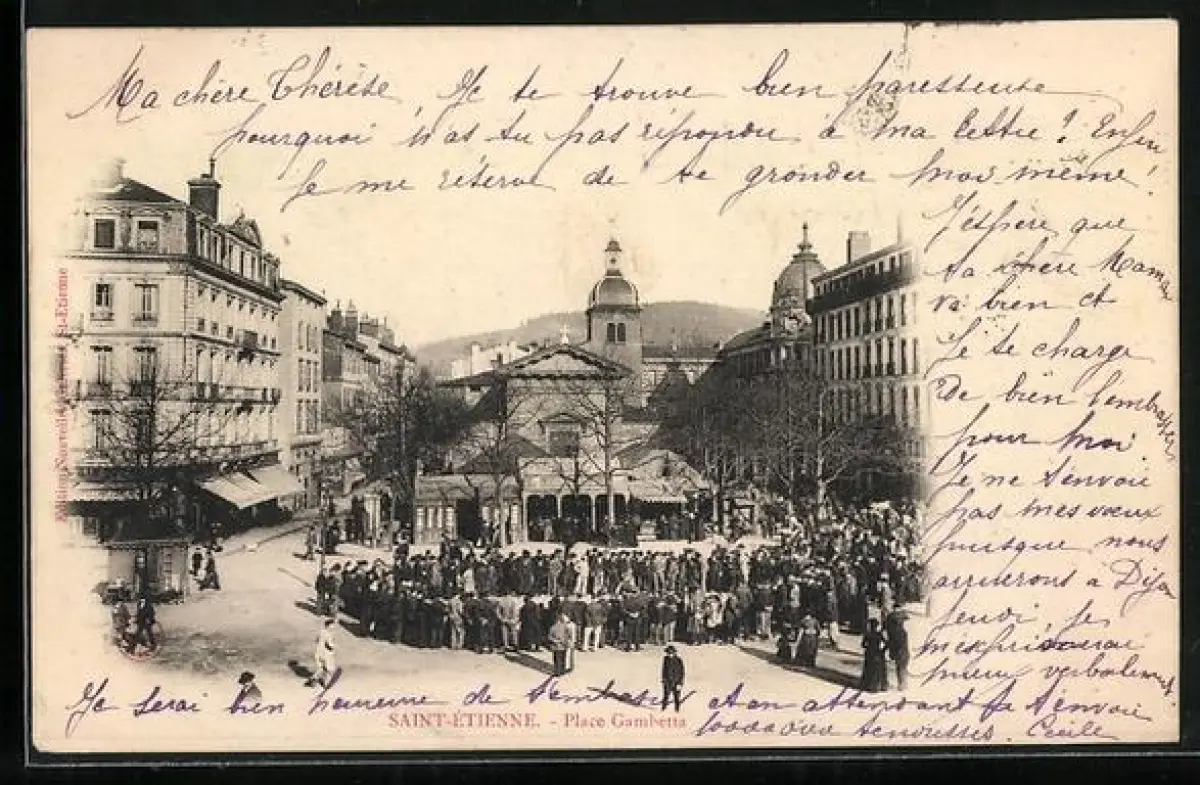 Ma chère Thérèse, Je te trouve bien paresseuse
pourquoi n'as tu pas répondu à ma lettre? Enfin
je me réserve de te gronder moi même!
J'espère que
ta chère Maman
va bien et
Je te charge
De bien l'embrasser
pour moi.
Je ne t'envoie
pas mes vœux
puisque nous
arriverons à Dijon
jeudi, je
m'exprimerai
mieux verbalement
Je serai bien heureuse de t'embrasser et en attendant je t'envoie
1000000 tendresses. Cécile
SAINT-ÉTIENNE. - Place Gambetta
Édition Nouvelles St-Etienne